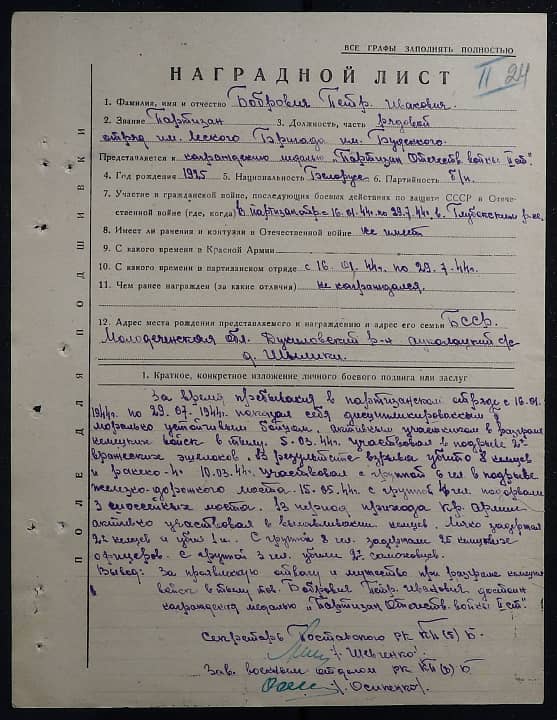 ВСЕ ГРАФЫ ЗАПОЛНЯТЬ ПОЛНОСТЬЮ
II 24
НАГРАДНОЙ ЛИСТ
1. Фамилия, имя и отчество Бобрович Петр Иванович.
2. Звание Партизан 3. Должность, часть рядовой
отряд им. Бригада им. Буденого.
Представляется к награждению медалью „Партизан Отечеств. войны II ст."
4. Год рождения 1925 5. Национальность Белорус 6. Партийность б/п.
7. Участие в гражданской войне, последующих боевых действиях по защите СССР и Отече-
ственной войне (где, когда) В партизанах с 16.01.44г. по 29.7.44г. в Глубокском р-не.
8. Имеет ли ранения и контузии в Отечественной войне не имеет
9. С какого времени в Красной Армии
10. С какого времени в партизанском отряде с 16.01.44г. по 29.7.44г.
11. Чем ранее награжден (за какие отличия) не награждался.
12. Адрес места рождения представляемого к награждению и адрес его семьи БССР.
Молодечненская обл. Дуниловский р-н с/с
д.
1. Краткое, конкретное изложение личного боевого подвига или заслуг
За время пребывания в партизанском отряде с 16.01.
1944г. по 29.07.1944г. показал себя дисциплинированным,
морально устойчивым бойцом, активным участником в разгроме
немецких войск в тылу. 5.03.44г. участвовал в подрыве 2х
вражеских эшелонов. В результате взрыва убито 8 немцев
и ранено-4. 10.03.44г. участвовал с группой 6 чел в подрыве
железно-дорожного моста. 15.05.44г. с группой чел подорвали
3 шоссейных моста. В период прихода Кр. Армии
активно участвовал в вылавливании немцев. Лично задержал
2х немцев и убил 1н. С группой 8 чел. задержали 25 немцев и 2е
офицеров. С группой 3 чел. убили 2х
Вывод: За проявленную отвагу и мужество при разгроме немецких
войск в тылу тов. Бобрович Петр Иванович достоин
награждения медалью „Партизан Отечеств. войны II ст."
Секретарь Поставского РК КП(б) Б.
/Шевченко/
Зав. военным отделом РК КП(б) Б
/Осипенко/.
ПОЛЕ ДЛЯ ПОДШИВКИ